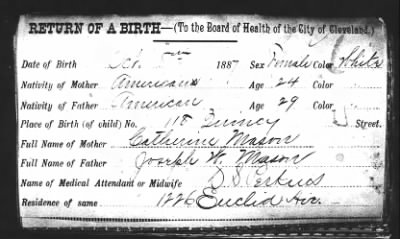 RETURN OF A BIRTH—(To the Board of Health of the City of Cleveland.)
Date of Birth Oct. 5th 1887 Sex Female Color White
Nativity of Mother American Age 24 Color
Nativity of Father American Age 29 Color
Place of Birth (of child) No. 115 Quincy Street.
Full Name of Mother Catherine Mason
Full Name of Father Joseph W. Mason
Name of Medical Attendant or Midwife
Residence of same 1226 Euclid Av.